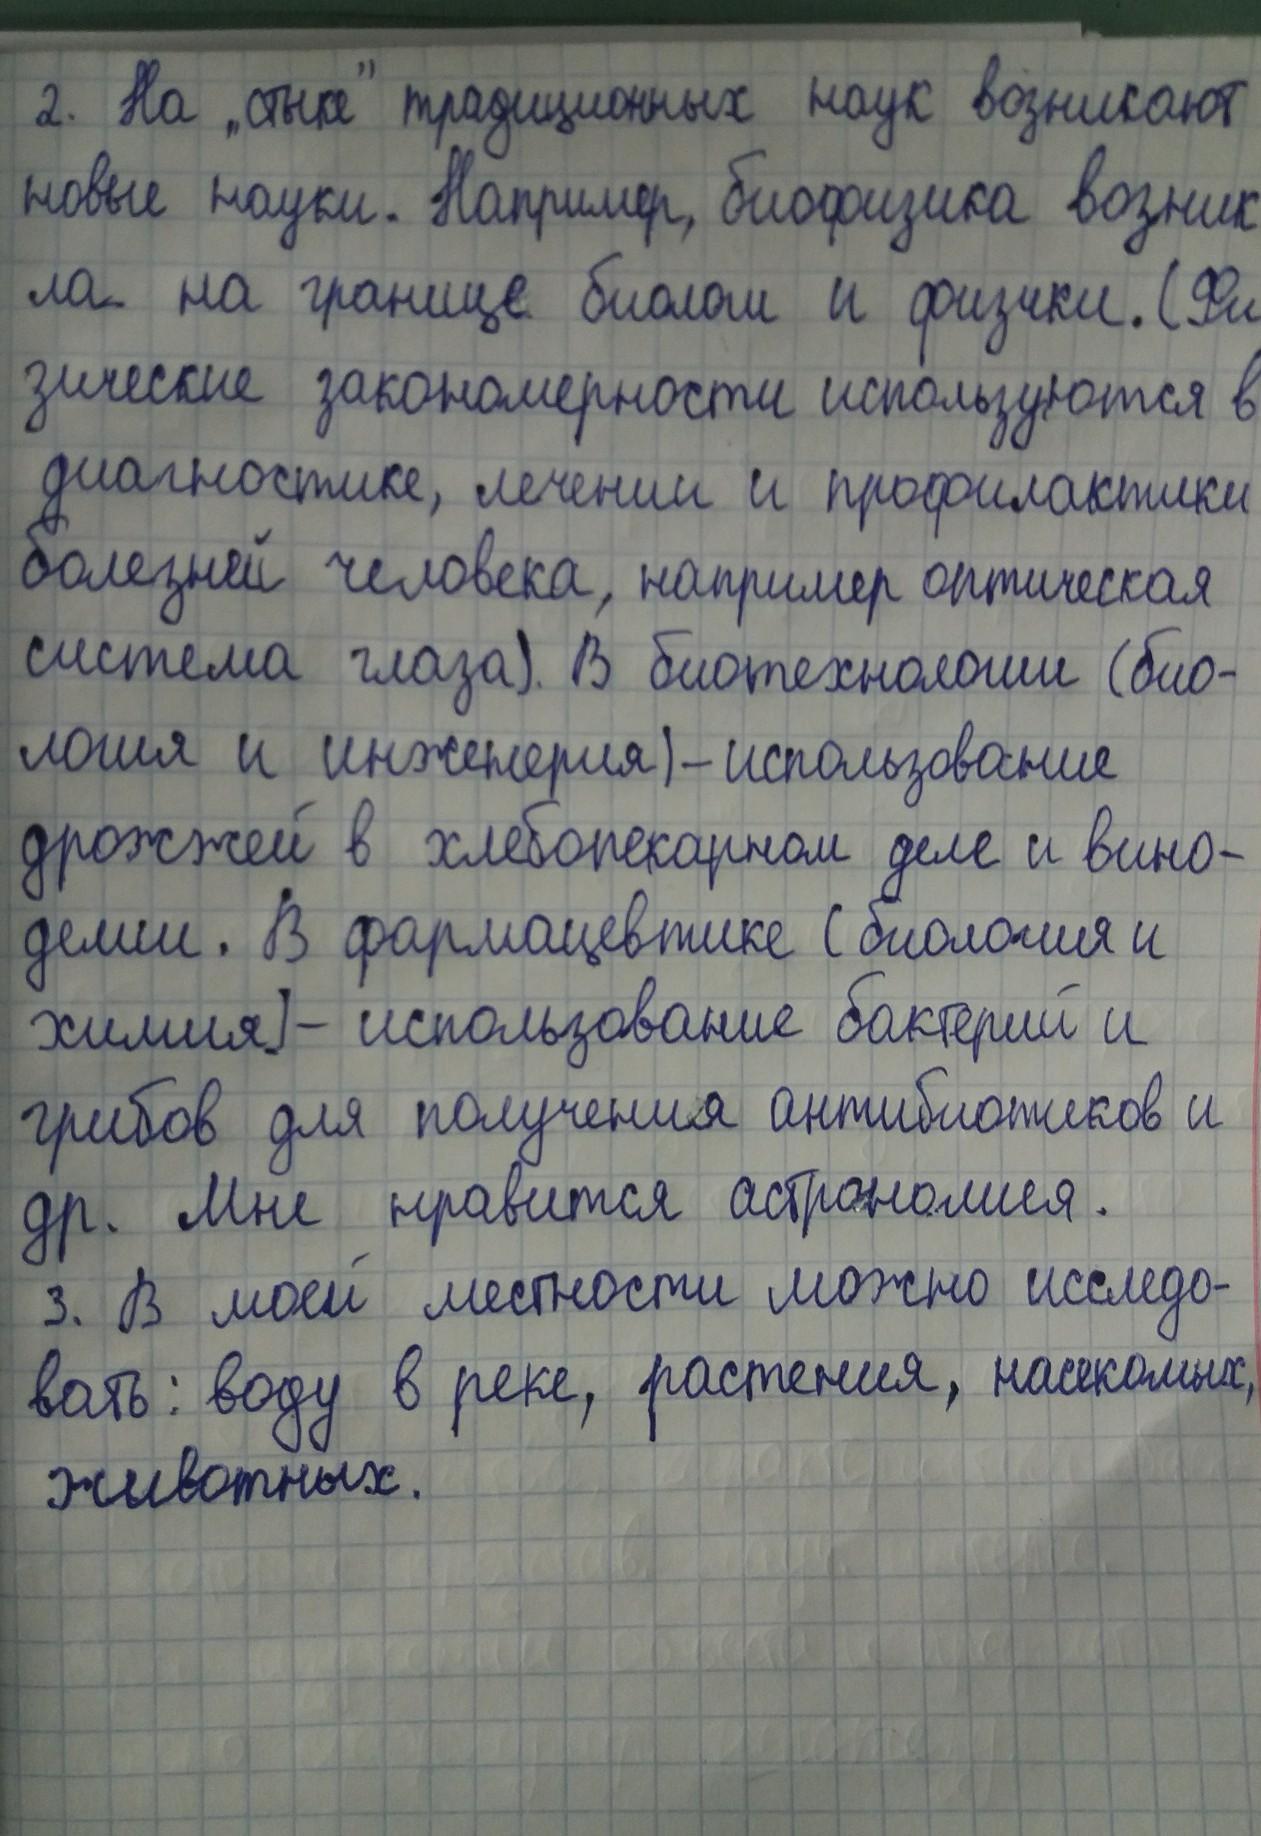 2. На „стыке” традиционных наук возникают
новые науки. Например, биофизика возник
ла на границе биологии и физики. (Фи
зические закономерности используются в
диагностике, лечении и профилактики
болезней человека, например оптическая
система глаза). В биотехнологии (био-
логия и инженерия) – использование
дрожжей в хлебопекарном деле и вино-
делии. В фармацевтике (биология и
химия) – использование бактерий и
грибов для получения антибиотиков и
др. Мне нравится астрономия.
3. В моей местности можно исследо-
вать: воду в реке, растения, насекомых,
животных.